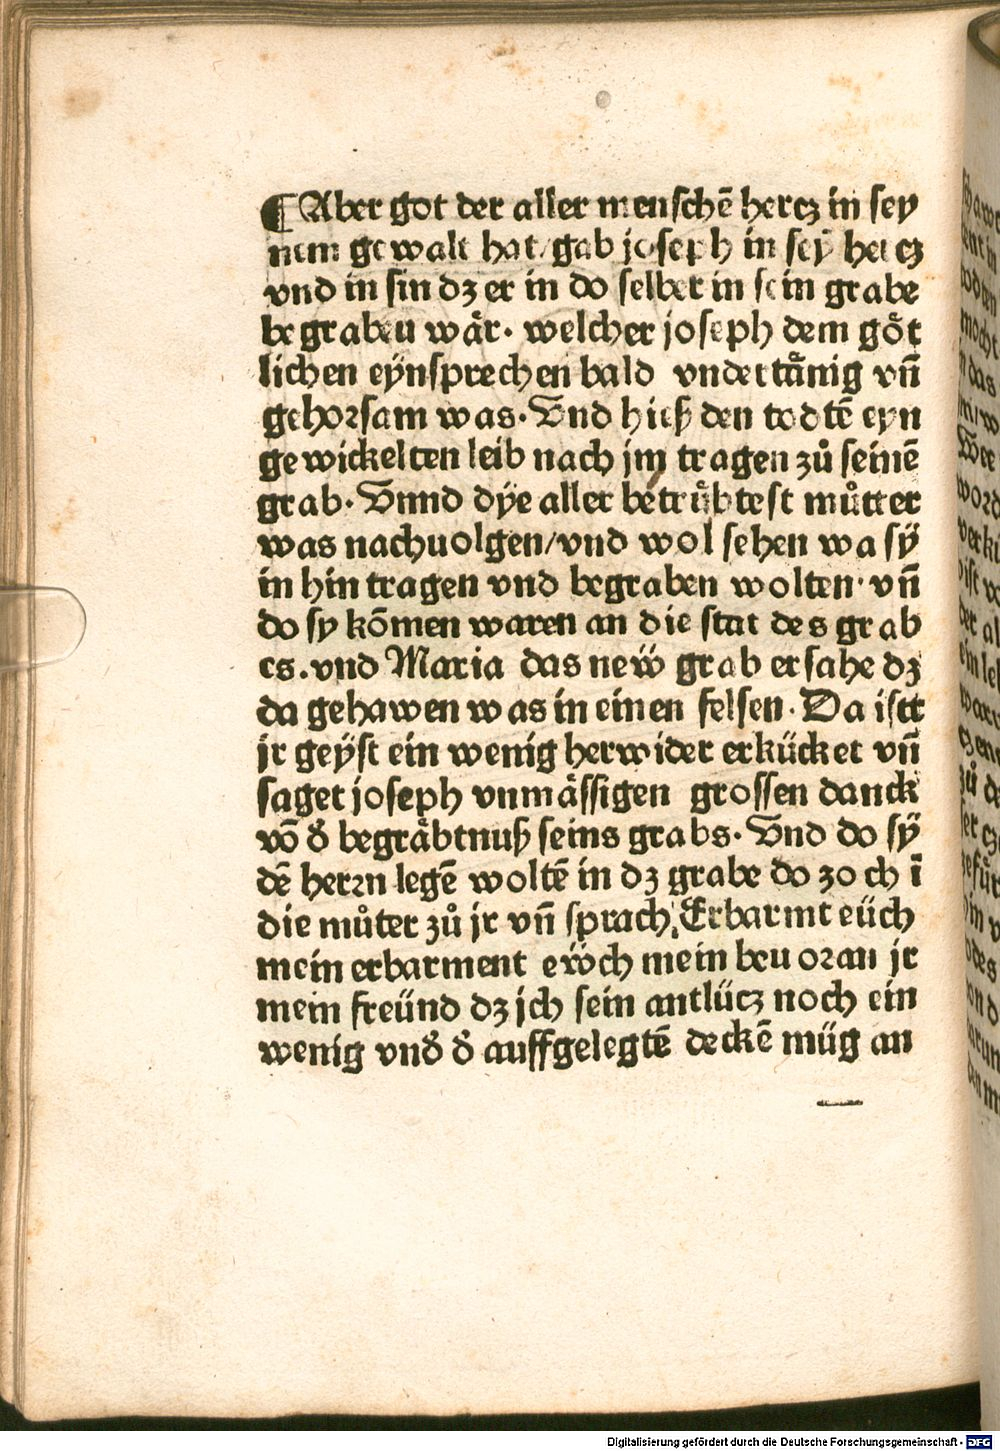 ¶ Aber got der aller menschē hertz in sey
nem gewalt hat/gab joseph in seÿ hertz
vnd in sin dz er in do selber in sein grabe
begraben wår. welcher joseph dem göt
lichen eÿnsprechen bald vndertånig vn̄
gehorsam was. Vnd hieß den todtē eyn
gewickelten leib nach jm tragen zů seinē
grab. Vnnd dÿe aller betrübtest můtter
was nachuolgen/vnd wol sehen wa sÿ
in hin tragen vnd begraben wolten. vn̄
do sy kōmen waren an die stat des grab
es. vnd Maria das new̎ grab ersahe dz
da gehawen was in einen felsen. Da istt
jr geÿst ein wenig herwider erkücket vn̄
saget joseph vnmässigen grossen danck
vō d̓ begråbtnuß seins grabs. Vnd do sÿ
dē herrn legē woltē in dz grabe do zoch ī
die můter zů jr vn̄ sprach. Erbarmt eüch
mein erbarment ew̎ch mein beuoran jr
mein freünd dz jch sein antlütz noch ein
wenig vnd̓ d̓ auffgelegtē deckē müg an
Digitalisierung gefördert durch die Deutsche Forschungsgemeinschaft - DFG